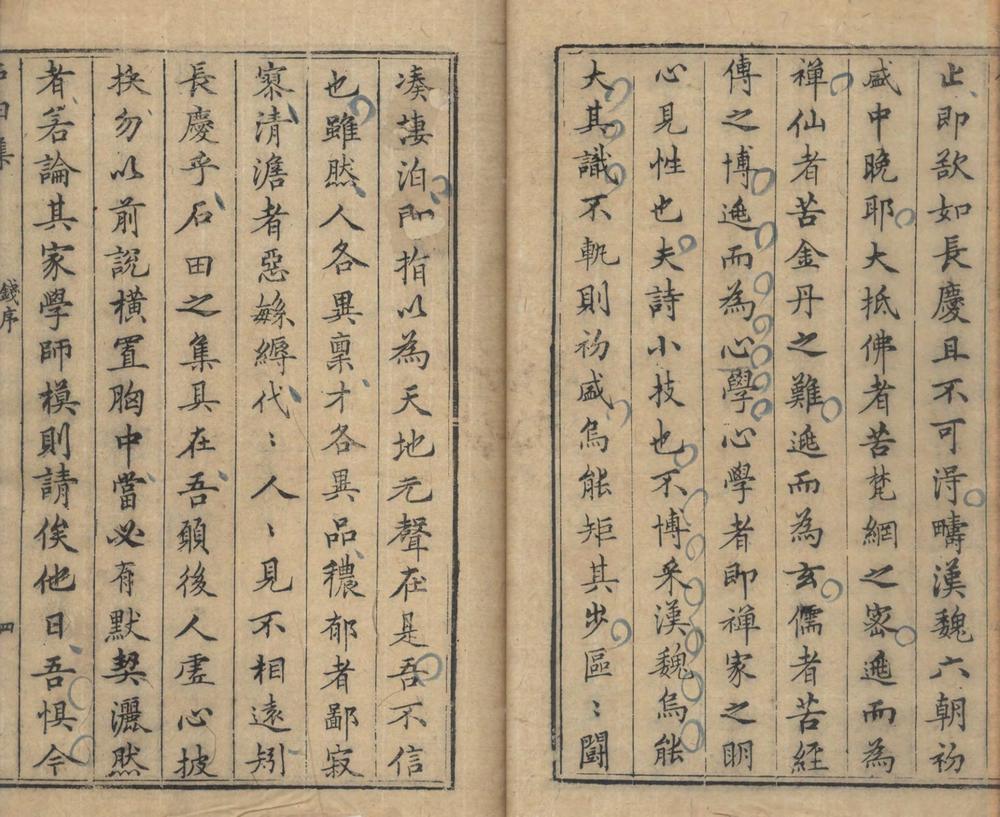 止即欲如長慶且不可淂疇漢魏六朝初
盛中晚耶大抵佛者苦梵網之宻逃而為
禅仙者苦金丹之難逃而為玄儒者苦經
傳之博逃而為心學心學者即禅家之明
心見性也夫詩小技也不博采漢魏烏能
大其識不軌則初盛烏能矩其步區〻闘
凑萋泊即指以為天地元聲在是吾不信
也雖然人各異禀才各異品穠郁者鄙寂
寥清澹者惡繇縟代〻人〻見不相遠矧
長慶乎石田之集具在吾願後人虚心披
抉勿以前説橫置胸中當必有默契灑然
者若論其家學師模則請俟他日吾惧今
石田集
錢序
四